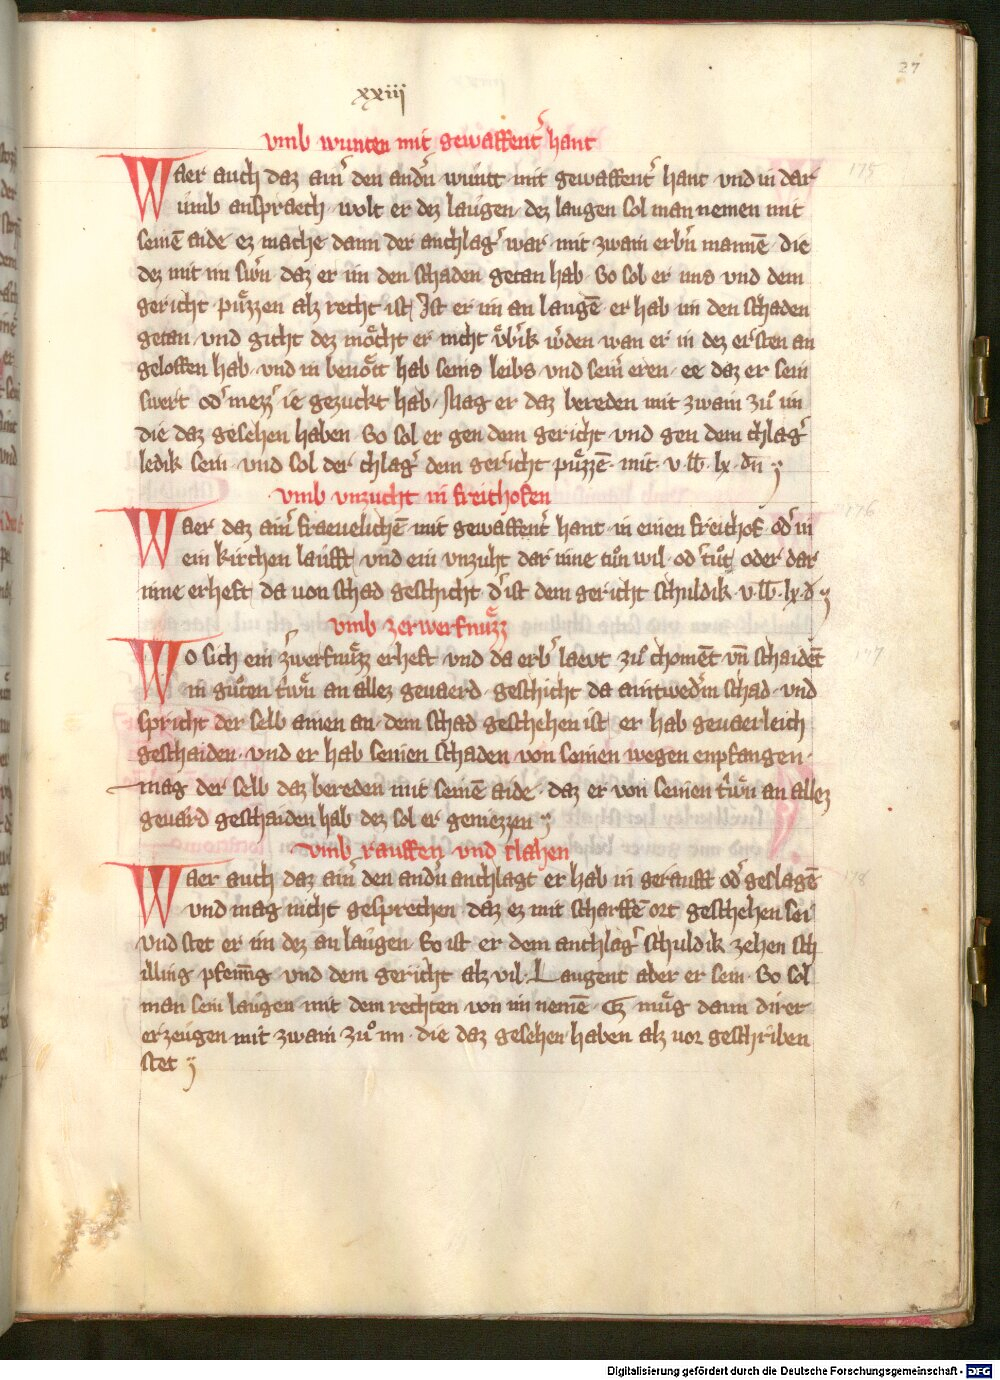 27
xxiii
vmb wunten mit gewaffent hant
Waer auch daz ainˀ den andˀn wuntt mit gewaffentˀ hant vnd in dar
umb anspraech wolt er dez laugen dez laugen sol man nemen mit
seinē aide ez mache dann der anchlagˀ war mit zwain erbˀn mannē die
dez mit im swˀn daz er im den schaden getan hab So sol er uns vnd dem
gericht puͤzzen alz recht ist Ist er im an laugē er hab im den schaden
getan vnd gicht dez moͤcht er nicht vͤbˀik wˀden wan er in dez ersten an
geloffen hab vnd in benoͤtt hab seins leibs vnd seinˀ eren ee daz er sein
swert odˀ mezzˀ ie gezuckt hab Mag er daz bereden mit zwain zuͦ im
die daz gesehen haben So sol er gen dem gericht vnd gen dem chlagˀ
ledik sein vnd sol der chlagˀ dem gericht puͤzzē mit v lb lx dn
vmb vnzucht in freithofen
Waer daz ainˀ fraeuelichē mit gewaffentˀ hant in einen freithof odˀ in
ein kirchen laufft vnd ein vnzuht dar inne tuͦn wil odˀ tuͦt oder dar
inne erheft da uon schad geschicht dˀ ist dem gericht schuldik v lb lx d
vmb zerwerfnuͤzz
Wo sich ein zˀwerfnuͤzz erheft vnd da erbˀ laevt zuͦ choment vn̄ schaident
in guͦten tˀwn an allez geuaerd geschicht da aintwedˀm schad vnd
spricht der selb ainen an dem schad geschehen ist er hab geuaerleich
geschaiden vnd er hab seinen schaden von seinen wegen enpfangen
mag der selb daz bereden mit seinē aide daz er von seinen tˀwn an allez
geuard geschaiden hab dez sol er geniezzen
vmb rauffen vnd slahen
Waer auch daz ainˀ den andˀn anchlagt er hab in gerauft odˀ geslagē
vnd mag nicht gesprechen daz ez mit scharffē ort geschehen sei
vnd stet er im dez an laugen So ist er dem anchlagˀ schuldik zehen sch
illing pfennig vnd dem gericht alz vil Laugent aber er sein So sol
man sein laugen mit dem rechten von im nemē Ez mug dann direr
erzeugen mit zwain zuͦ im die daz gesehen haben alz uor geschriben
stet
175
176
177
178
Digitalisierung gefördert durch die Deutsche Forschungsgemeinschaft - DFG